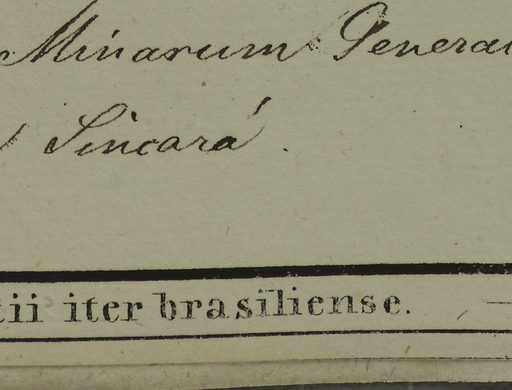 Minarum Genera
Sincará.
tii iter brasiliense.